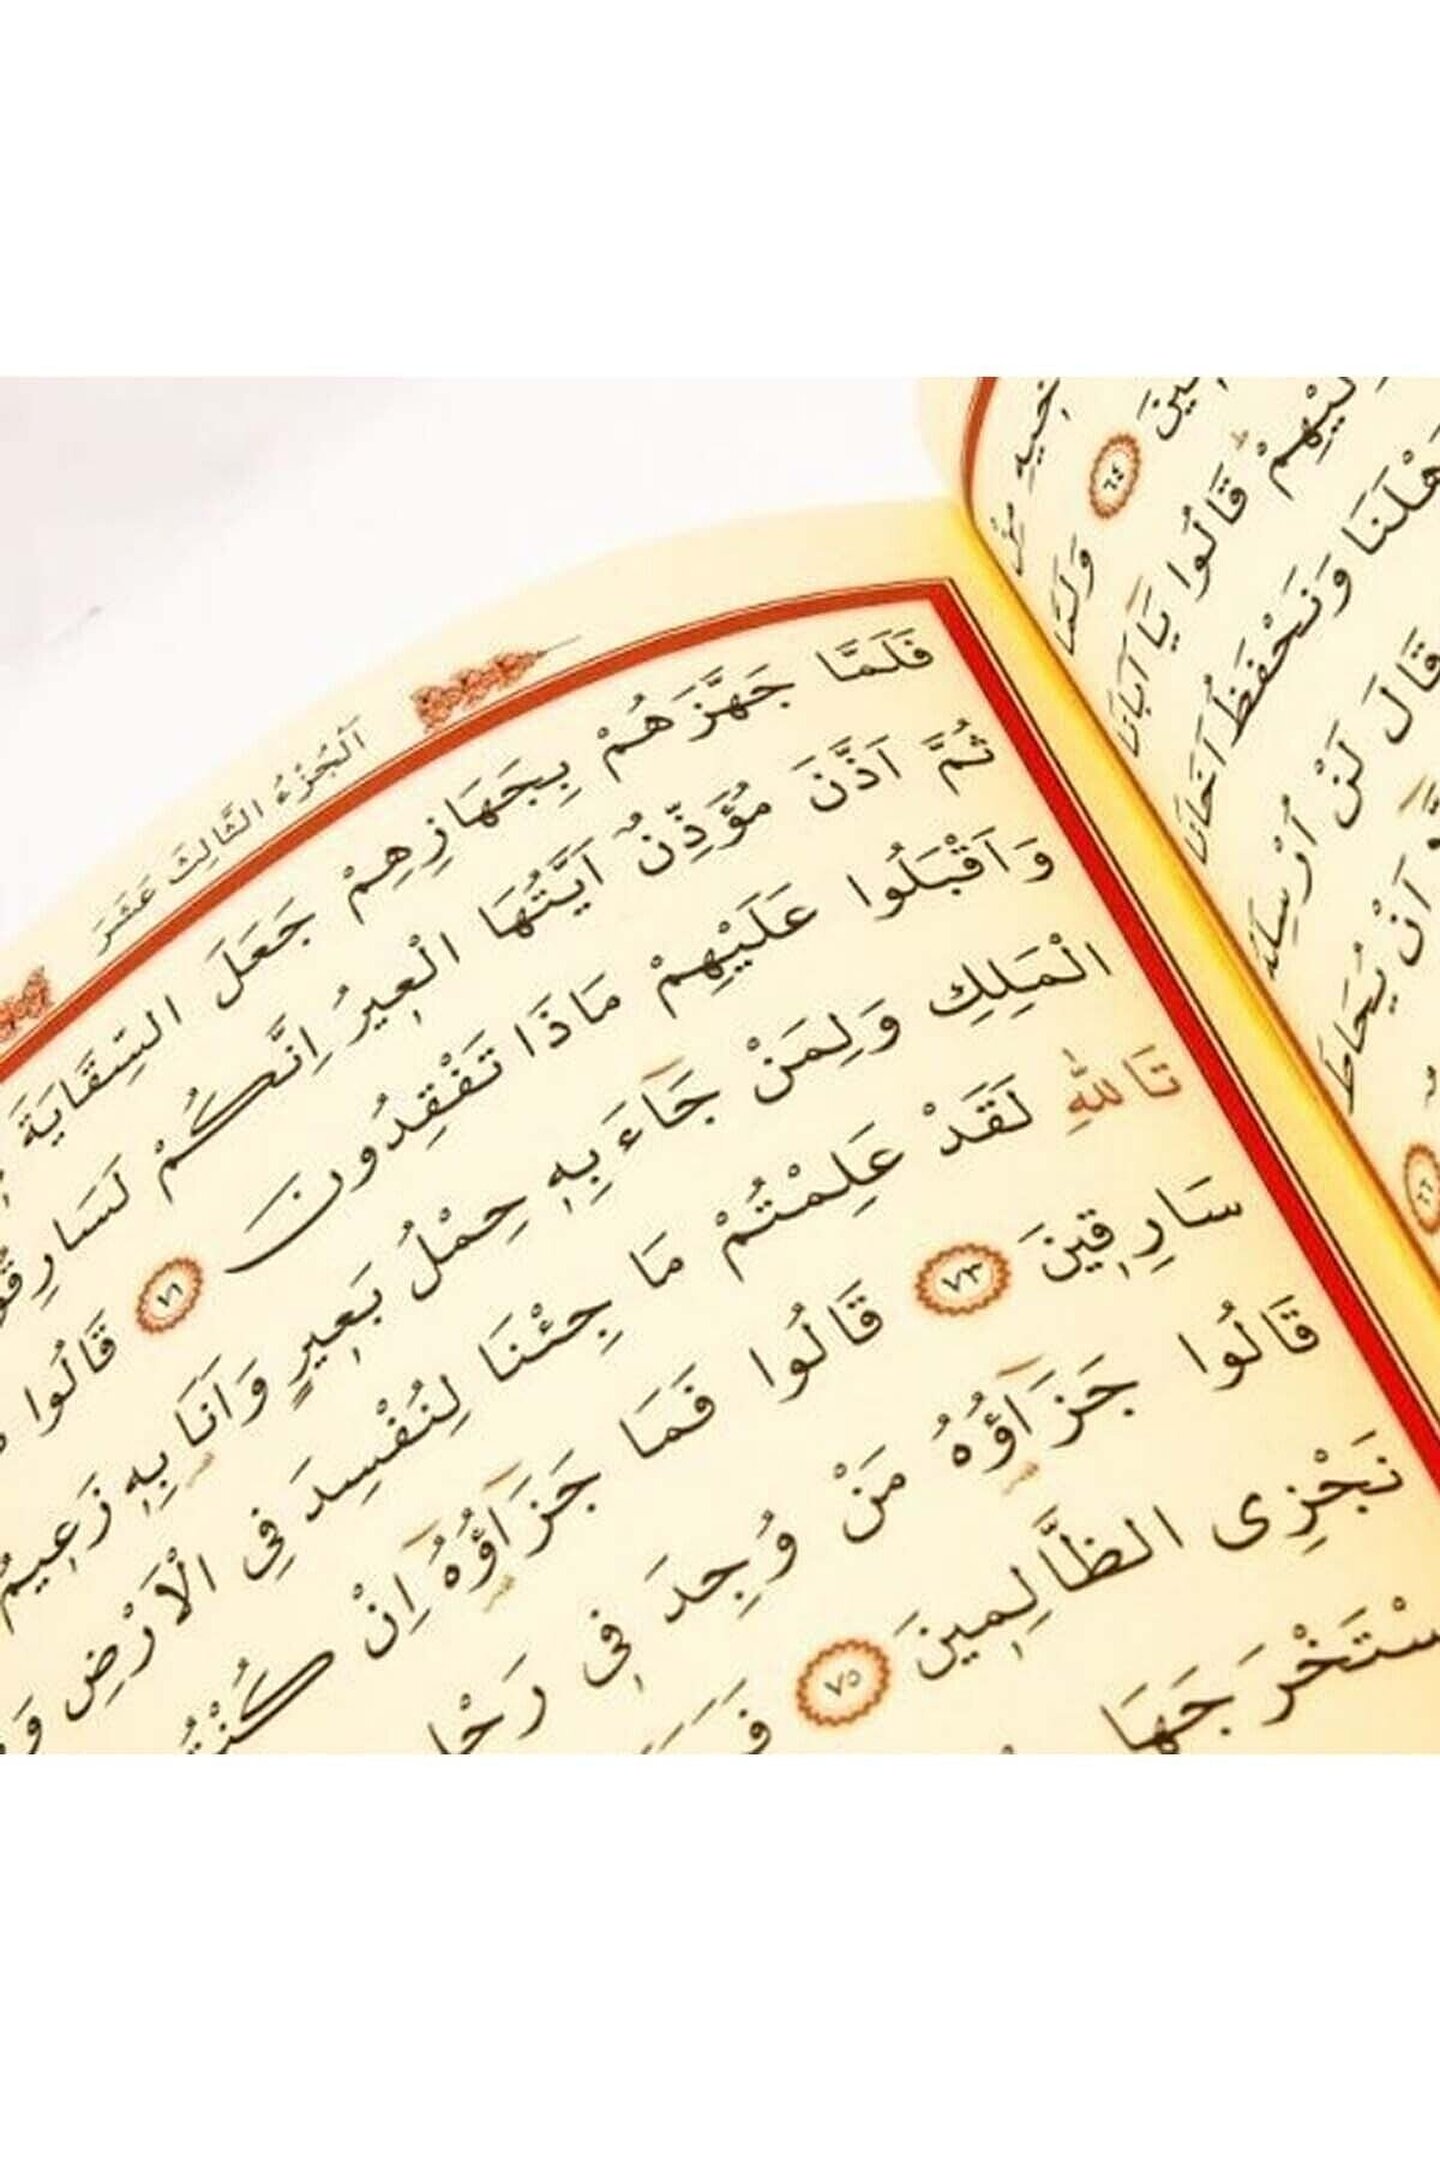 اَلْجُزْءُ الثَّالِثَ عَشَرَ
فَلَمَّا جَهَّزَهُمْ بِجَهَازِهِمْ جَعَلَ السِّقَايَةَ
ثُمَّ اَذَّنَ مُؤَذِّنٌ اَيَّتُهَا الْعٖيرُ اِنَّكُمْ لَسَارِقُو
وَاَقْبَلُوا عَلَيْهِمْ مَاذَا تَفْقِدُونَ ﴿٧١﴾ قَالُوا
الْمَلِكِ وَلِمَنْ جَٓاءَ بِهٖ حِمْلُ بَعٖيرٍ وَاَنَا۬ بِهٖ زَعٖيمٌ
تَاللّٰهِ لَقَدْ عَلِمْتُمْ مَا جِئْنَا لِنُفْسِدَ فِي الْاَرْضِ وَ
سَارِقٖينَ ﴿٧٣﴾ قَالُوا فَمَا جَزَٓاؤُ۬هُٓ اِنْ كُنْتُ
قَالُوا جَزَٓاؤُ۬هُ مَنْ وُجِدَ فٖي رَحْلِ
نَجْزِي الظَّالِمٖينَ ﴿٧٥﴾
سْتَخْرَجَهَا
اَخٖيهِ
﴿٦٤﴾ وَلَمَّا
اِلَيْهِمْ قَالُوا يَٓا اَبَانَا
هْلَنَا وَنَحْفَظُ اَخَانَا
قَالَ لَنْ اُرْسِلَهُ
اَنْ يُحَاطَ
﴿٦٦﴾